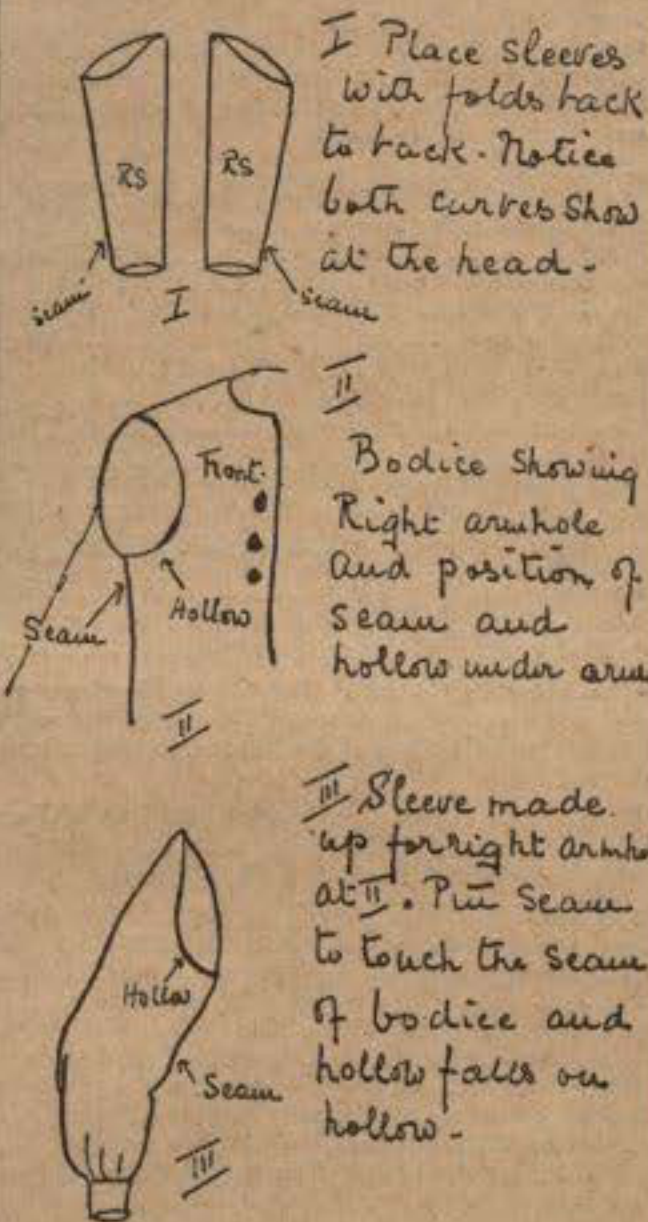 I Place sleeves
with folds back
to back. Notice
both curves show
at the head.
RS
RS
seam
I
seam
II
Bodice showing
Right armhole
and position of
seam and
hollow under arm
Front.
Seam
Hollow
II
III Sleeve made
up for right armho
at II. Put seam
to touch the seam
of bodice and
hollow falls on
hollow.
Hollow
Seam
III